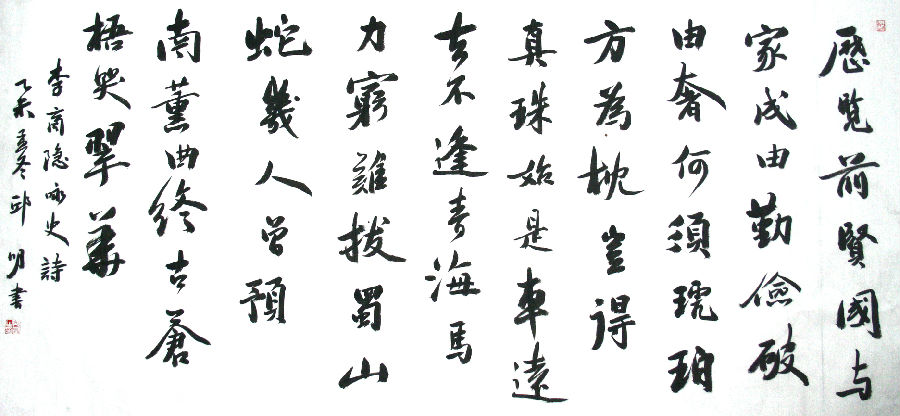 歷覽前賢國与
家成由勤儉破
由奢何須琥珀
方為枕豈得
真珠始是車遠
去不逢青海馬
力窮難拔蜀山
蛇幾人曾預
南薰曲終古蒼
梧哭翠華
李商隐咏史詩
乙未孟冬邱明書